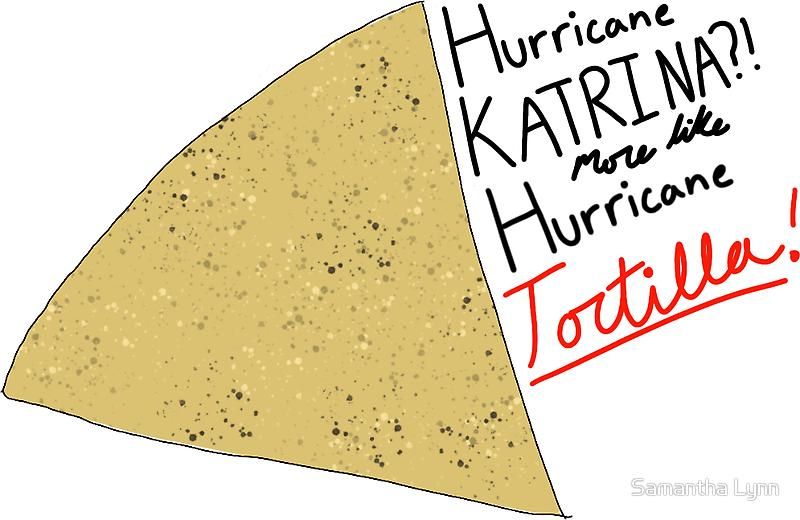 Hurricane
KATRINA?!
more like
Hurricane
Tortilla!
Samantha Lynn